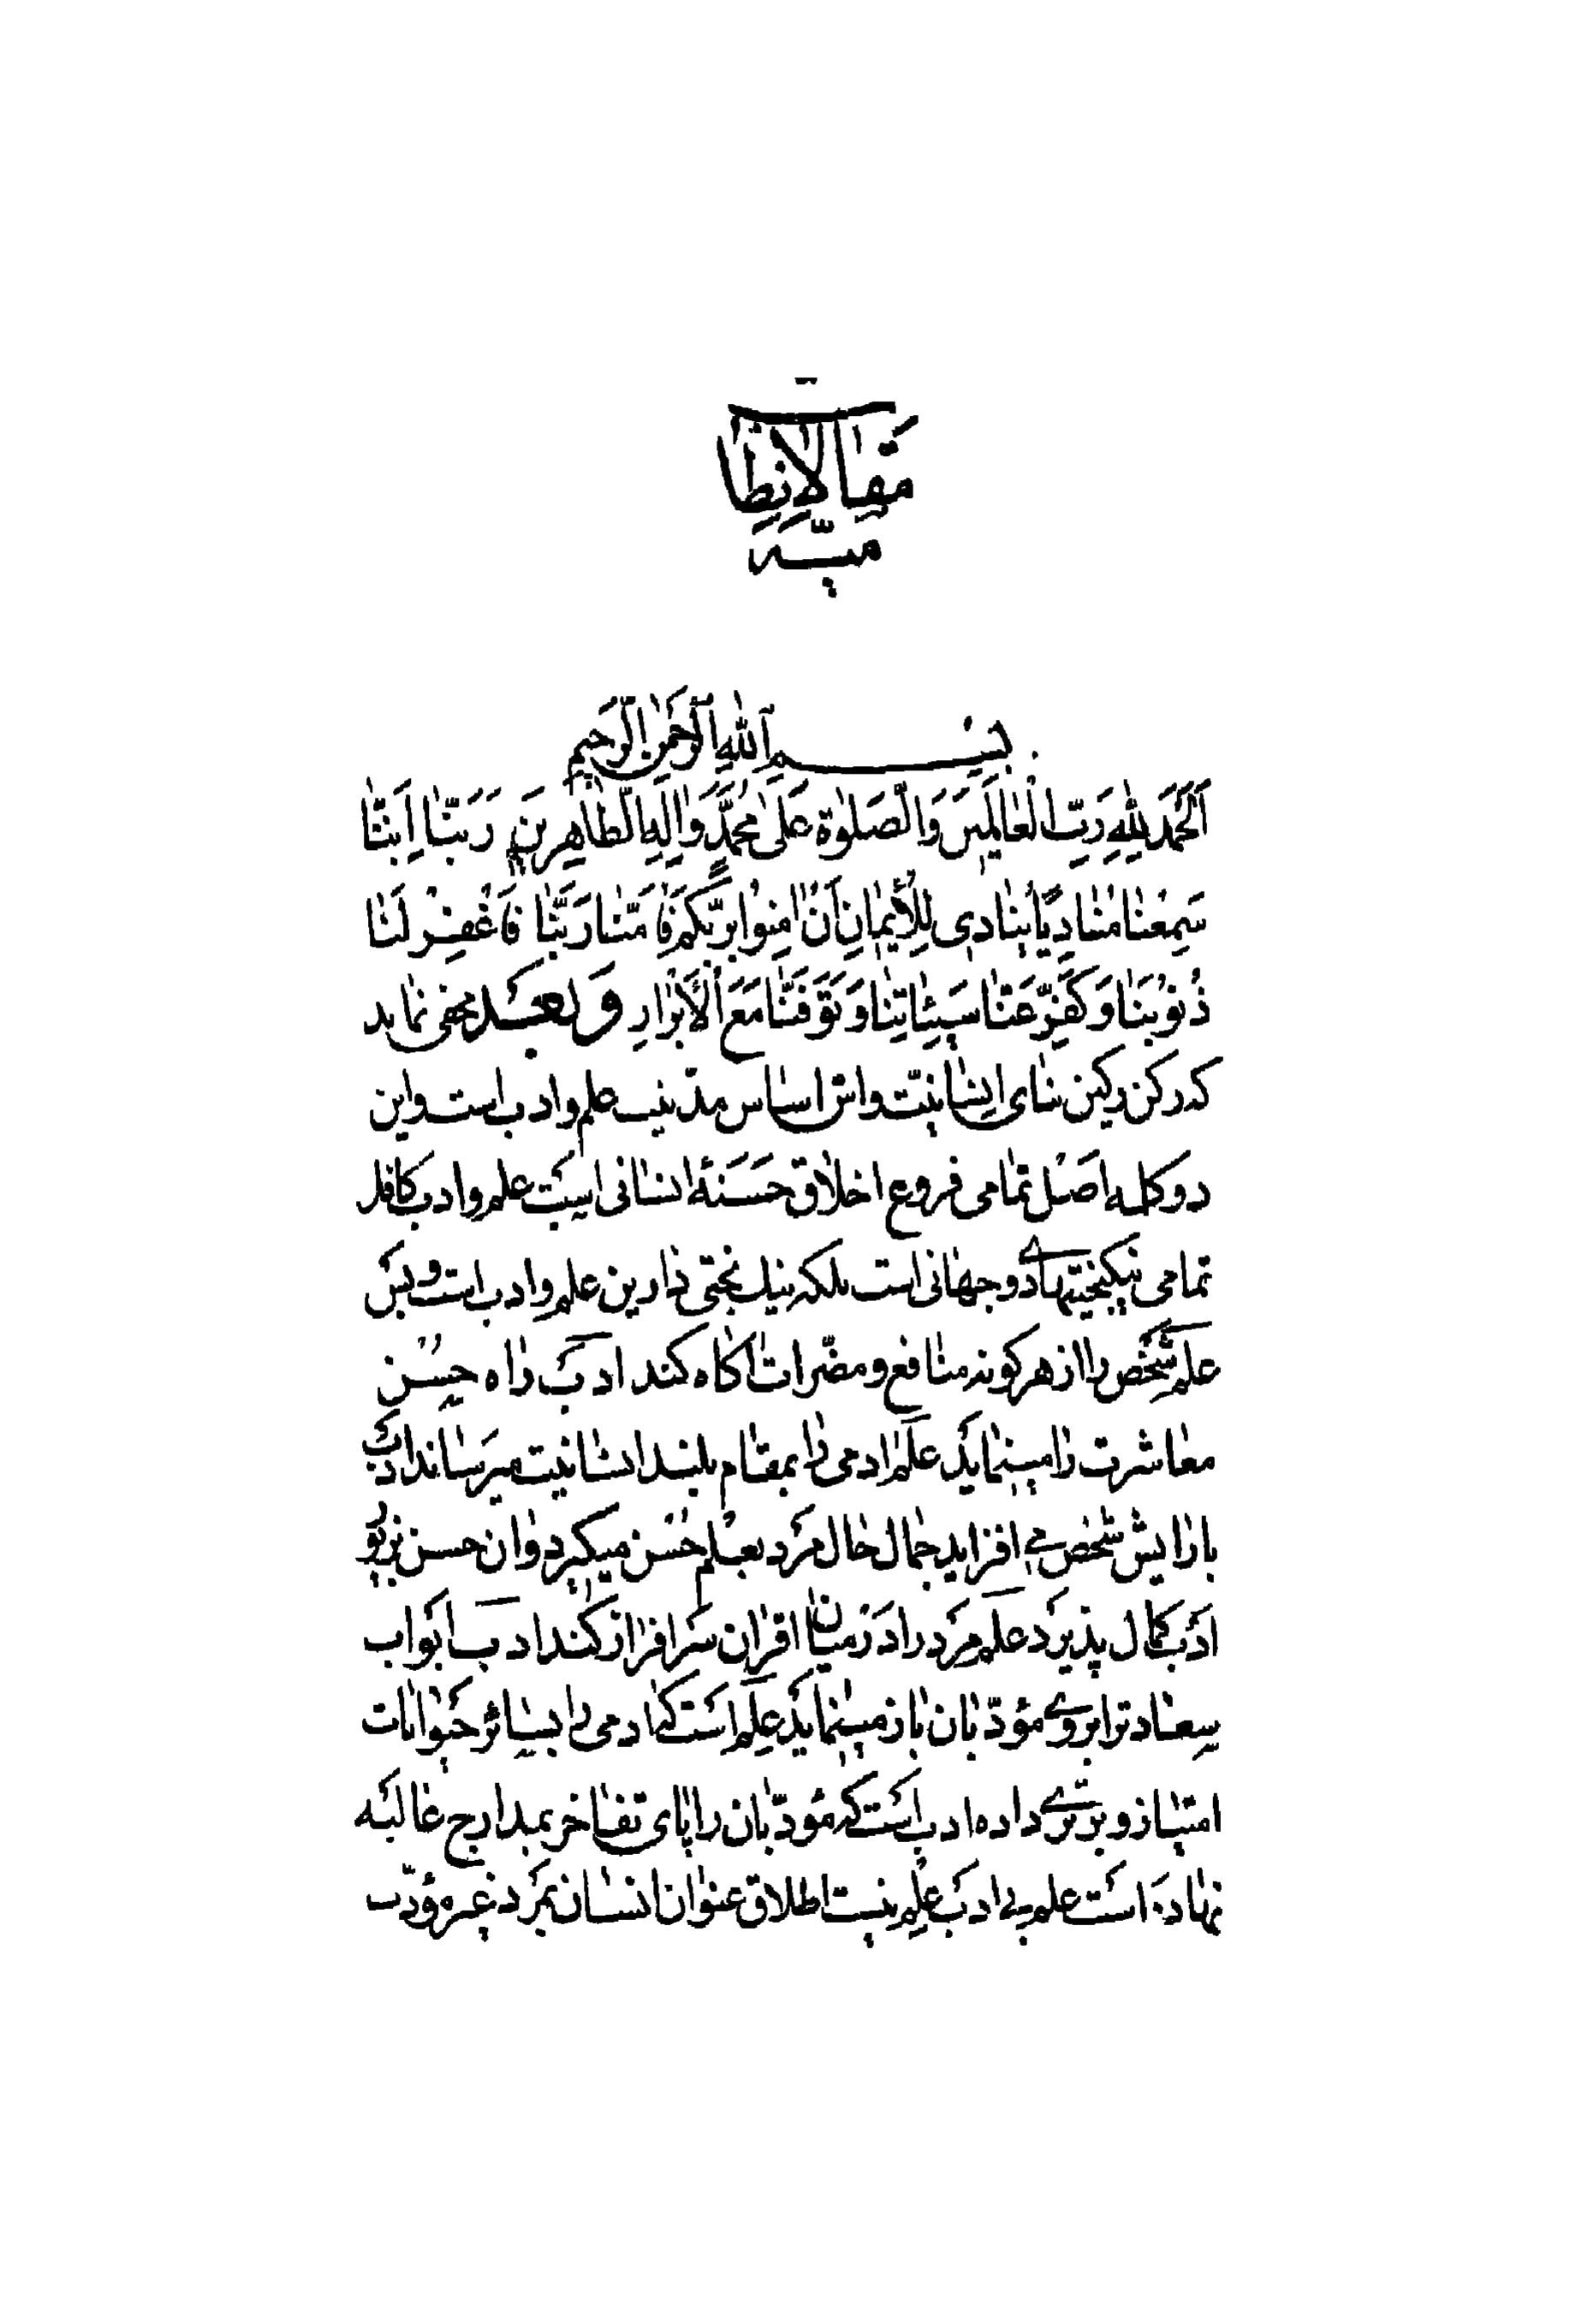 مقالات نظا
میه
بسم الله الرحمن الرحیم
اَلْحَمْدُ لِلّٰهِ رَبِّ الْعٰالَمِینَ وَالصَّلوٰةُ عَلیٰ مُحَمَّدٍ وَاٰلِهِ الطّٰاهِرِینَ رَبَّنٰا اِنَّنٰا
سَمِعْنٰا مُنٰادِیًا یُنٰادِی لِلْأیمٰانِ اَنْ اٰمِنُوا بِرَبِّکُمْ فَاٰمَنّٰا رَبَّنٰا فَاغْفِرْ لَنٰا
ذُنُوبَنٰا وَکَفِّرْ عَنّٰا سَیِّئٰاتِنٰا وَتَوَفَّنٰا مَعَ الْأَبْرٰارِ وَبعد مخفی نماید
که رکن رکین بنای انسانیت واس اساس مدنیت علم وادب است واین
دو کلمه اصل تمامی فروع اخلاق حسنهٔ انسانی است علم وادب کافل
تمامی نیکبختیهای دوجهانی است بلکه نیک بختی دارین علم وادب است وبس
علم شخص را از هرکونه منافع ومضرات اکاه کند ادب راه حسن
معاشرت را مینماید علم ادمی را بمقام بلند انسانیت میرساند ادب
بارایش شخص می افزاید جمال حال مرد بعلم حسن میکیرد وان حسن بزیور
ادب کمال پذیرد علم مرد را در میان اقران سرافراز کند ادب ابواب
سعادترا بروی مؤدّبان باز مینماید علم است که ادمی را بسائر حیوانات
امتیاز وبرتری داده ادب است که مؤدّبان را پای تفاخر بمدارج عالیه
نهاده است علم بی ادب علم نیست اطلاق عنوان انسان بمرد غیرمؤدّب